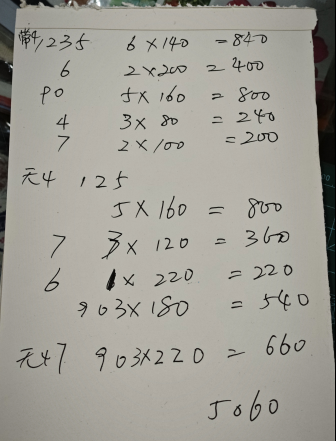 带4,1235 6×140 = 840
6 2×200 = 400
PO 5× 160 = 800
4 3× 80 = 240
7 2×100 = 200
无4 ,125
5×160 = 800
7 3× 120 = 360
6 1× 220 = 220
903×180 = 540
无47 903×220 = 660
5060